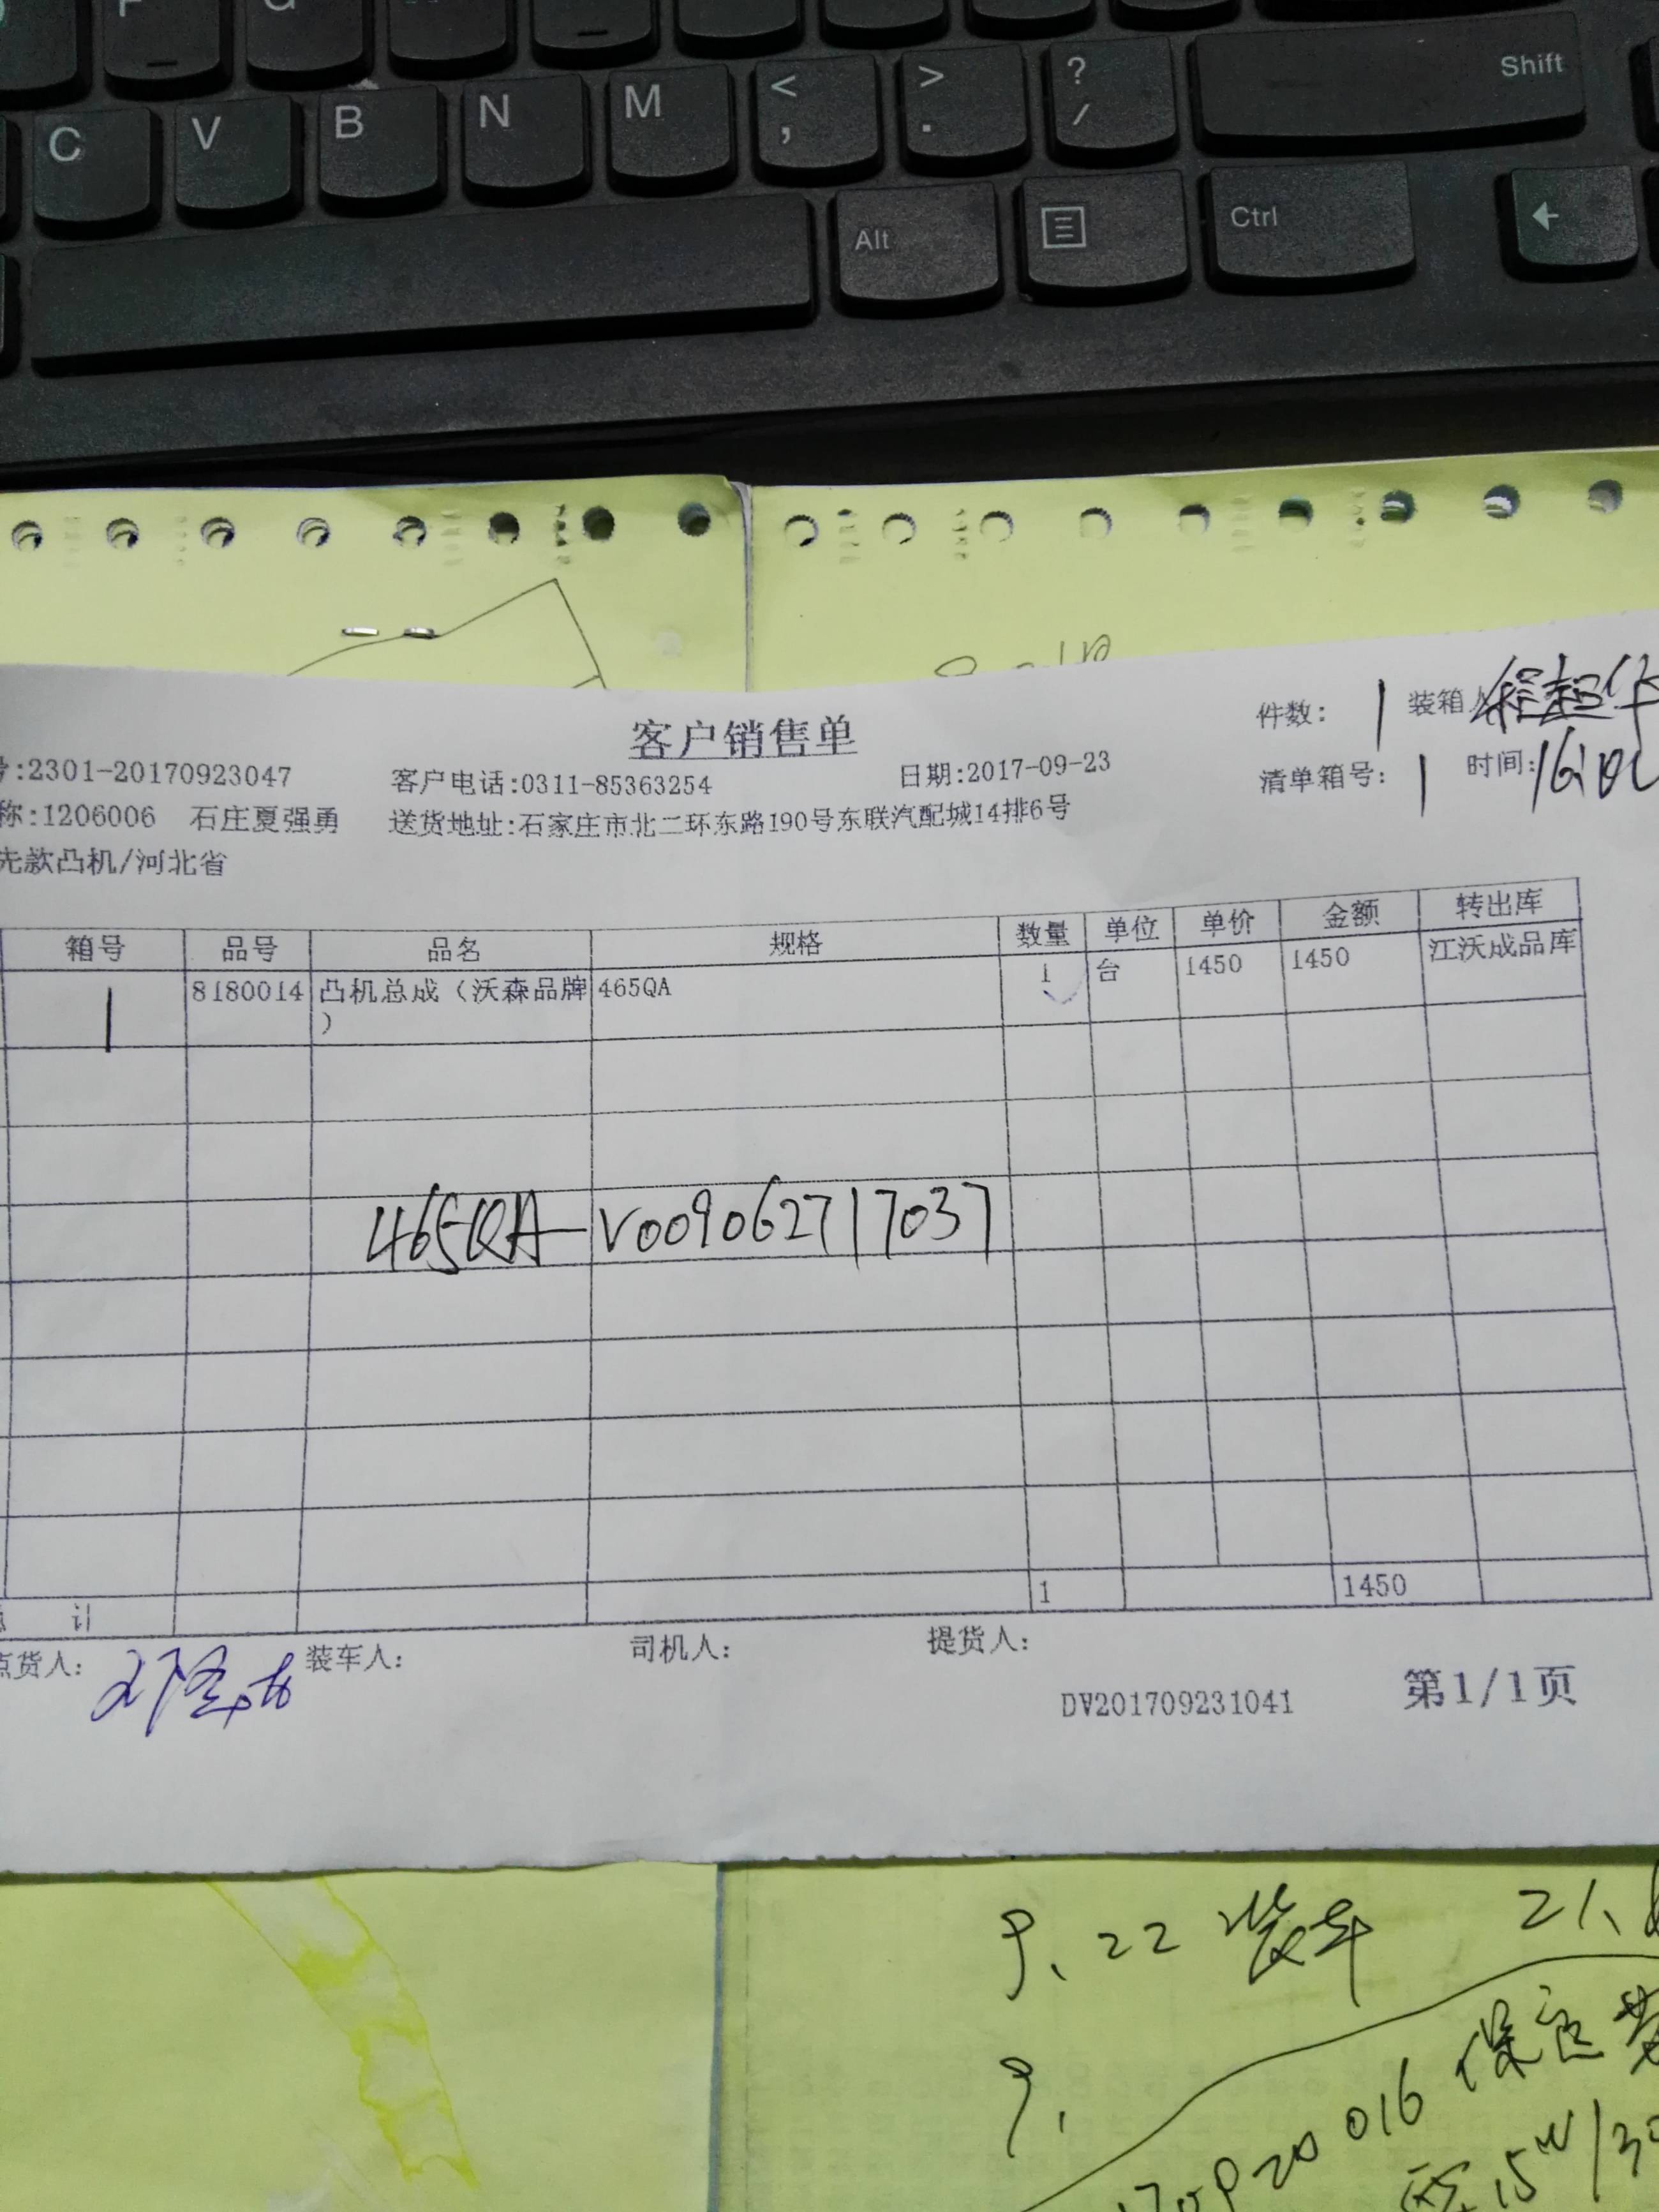 C V B N M < , > . ? / Shift
Alt Ctrl
客户销售单
件数: 1 装箱人
:2301-20170923047 客户电话:0311-85363254 日期:2017-09-23
清单箱号: 1 时间:
称:1206006 石庄夏强勇 送货地址:石家庄市北二环东路190号东联汽配城14排6号
先款凸机/河北省
箱号 品号 品名 规格 数量 单位 单价 金额 转出库
1 8180014 凸机总成（沃森品牌 465QA 1 台 1450 1450 江沃成品库
）
465QA-V009062717037
计 1 1450
点货人: 装车人: 司机人: 提货人:
DV201709231041 第1/1页
9.22 装车 21.
9.
016 保定